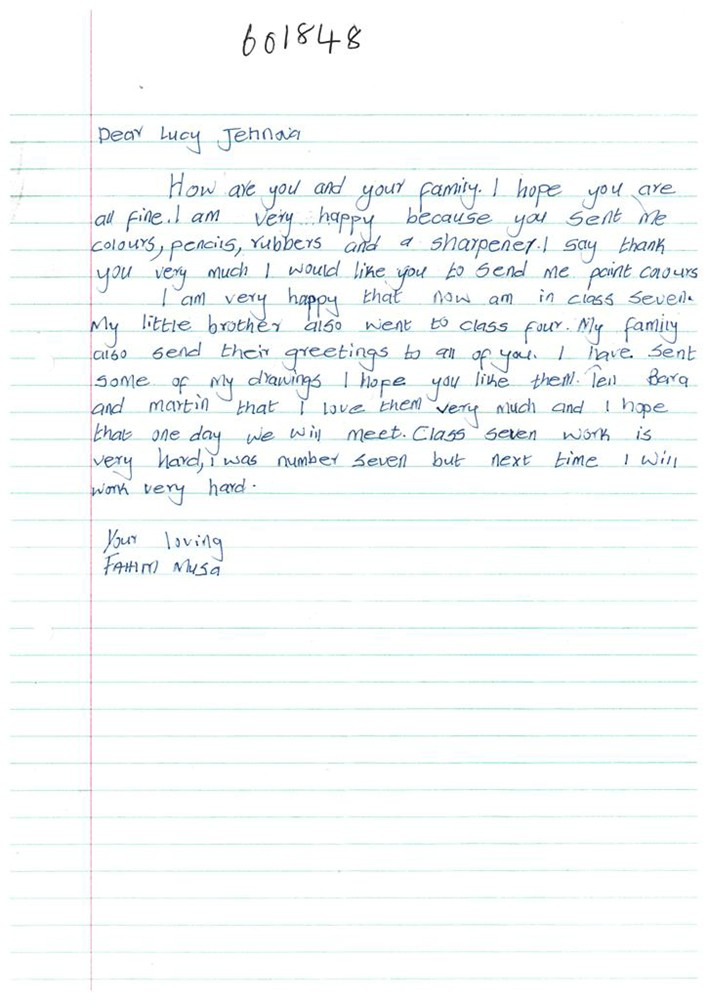 601848
Dear Lucy Jehnova
How are you and your family. I hope you are
all fine. I am very happy because you sent me
colours, pencils, rubbers and a sharpener. I say thank
you very much I would like you to send me paint colours
I am very happy that now am in class seven.
My little brother also went to class four. My family
also send their greetings to all of you. I have sent
some of my drawings I hope you like them. Tell Bara
and martin that I love them very much and I hope
that one day we will meet. Class seven work is
very hard, i was number seven but next time I will
work very hard.
Your loving
FAHIM Musa